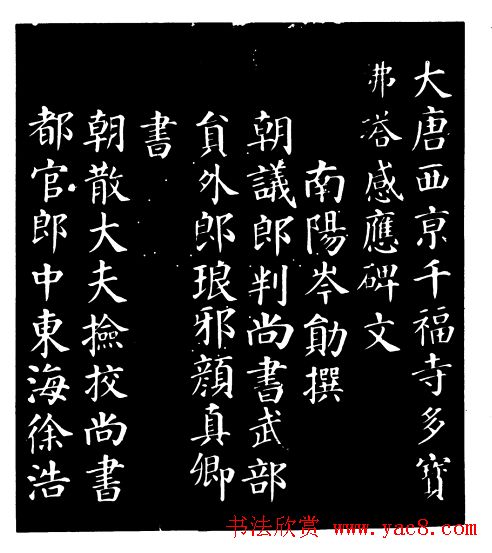 大唐西京千福寺多寶
佛塔感應碑文
南陽岑勛撰
朝議郎判尚書武部
員外郎琅邪顏真卿
書
朝散大夫撿挍尚書
都官郎中東海徐浩
书法欣赏 www.yac8.com